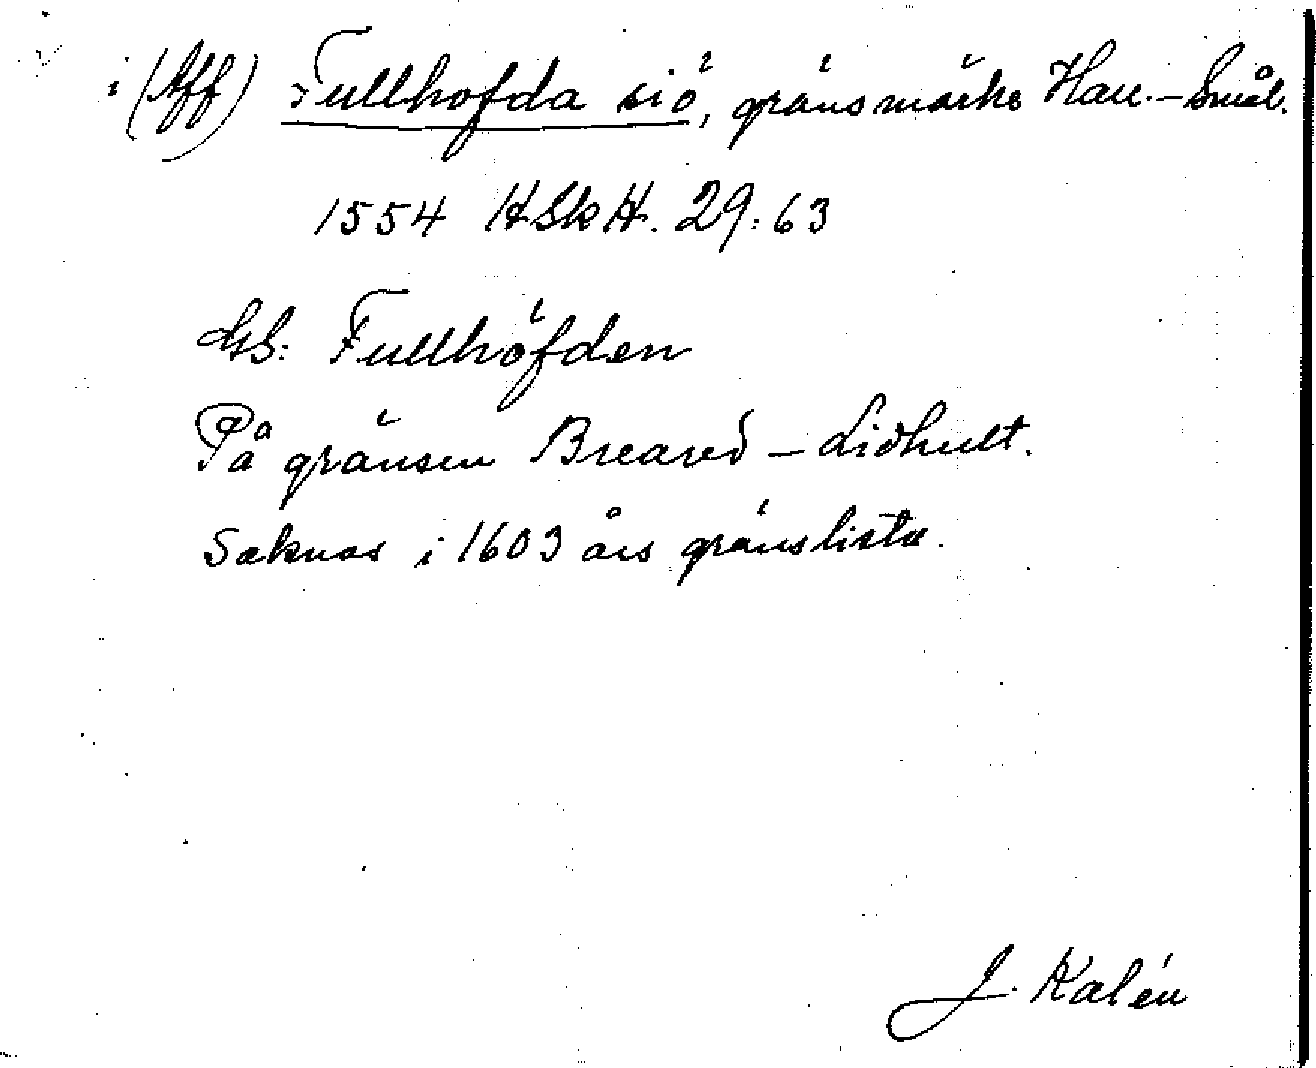 i (Aff) Fullhofda siö, gränsmärke Hall.-Smål.
1554 HSkH. 29:63
GS: Fullhöfden
På gränsen Breared - Lidhult.
Saknas i 1603 års gränslista.
J. Kalén